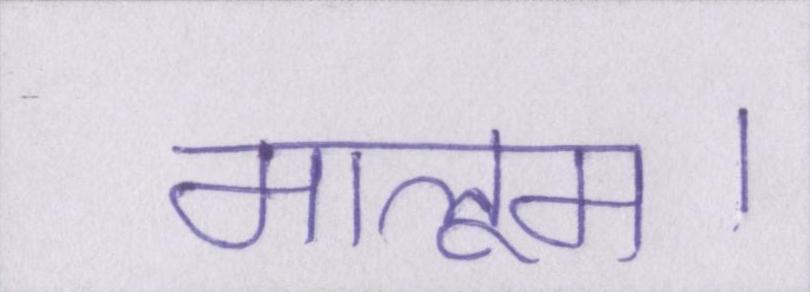 मालूम।